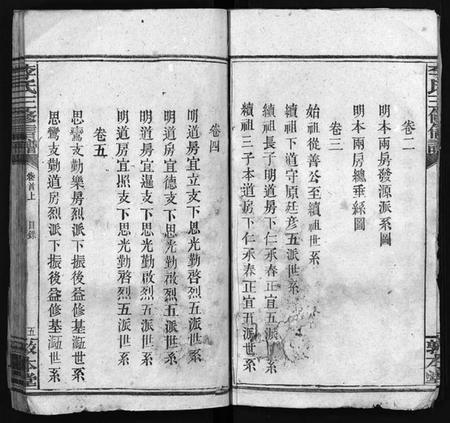 李氏三修信譜
卷二
明本兩房發源派系圖
明本兩房總垂絲圖
卷三
始祖從善公至續祖世系
續祖下道守原廷彥五派世系
續祖長子明道房下仁承春正宜五派世系
續祖三子本道房下仁承春正宜五派世系
敦本堂
卷四
明道房宜立支下思光勤啓烈五派世系
明道房宜德支下思光勤啟烈五派世系
明道房宜暹支下思光勤啟烈五派世系
明道房宜照支下思光勤啓烈五派世系
卷五
思鸞支勤樂房烈派下振後益修基灝世系
思鸞支勤道房烈派下振後益修基灝世系
李氏三修信譜
卷首上
目錄
五
敦本堂